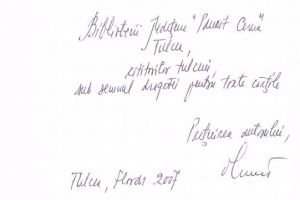 Bibliotecii Județene "Panait Cerna"
Tulcea,
cititorilor tulceni,
sub semnul dragostei pentru toate cărțile
Prețuirea autorului,
Tulcea, Florii 2007